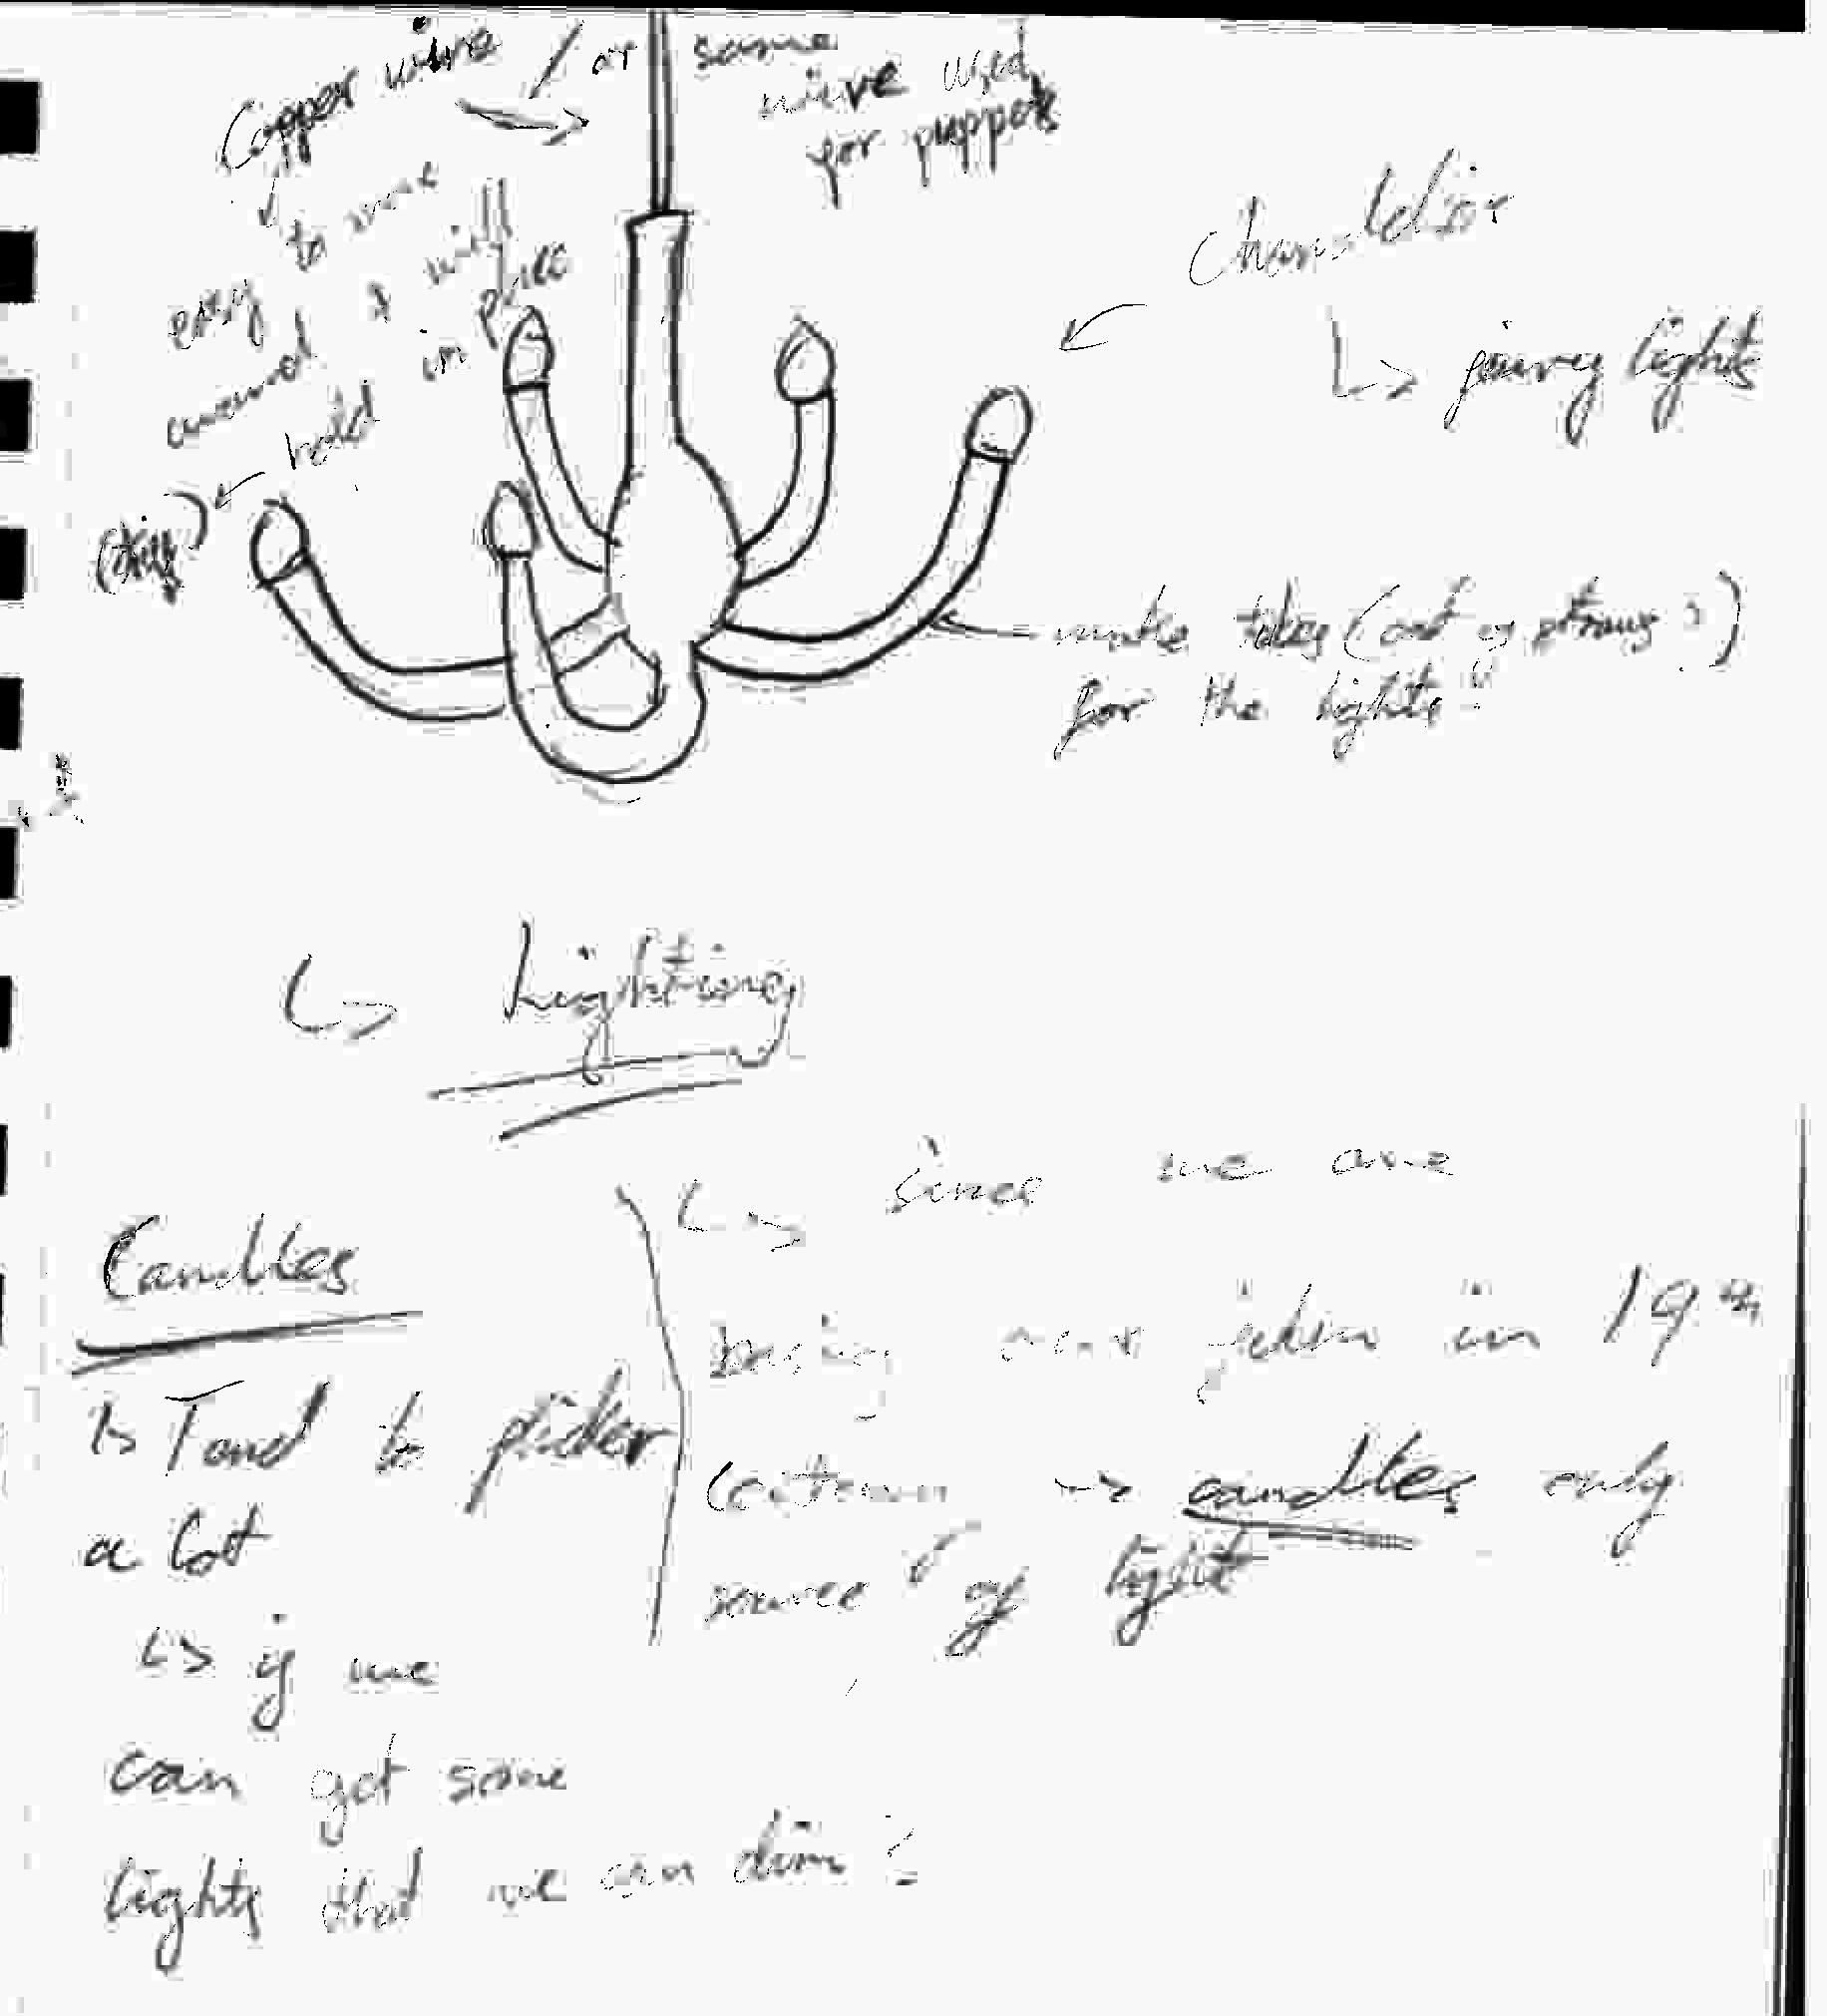 Copper wire / or same
wire used
for puppets
easy to move
around & will
hold in place
Chandelier
↳ fairy lights
make tubes (out of straws?)
for the lights
↳ Lighting
Candles
↳ Tend to flicker
a lot
↳ if we
can get some
lights that we can dim?
↳ since we are
basing our film in 19th
century → candles only
source of light